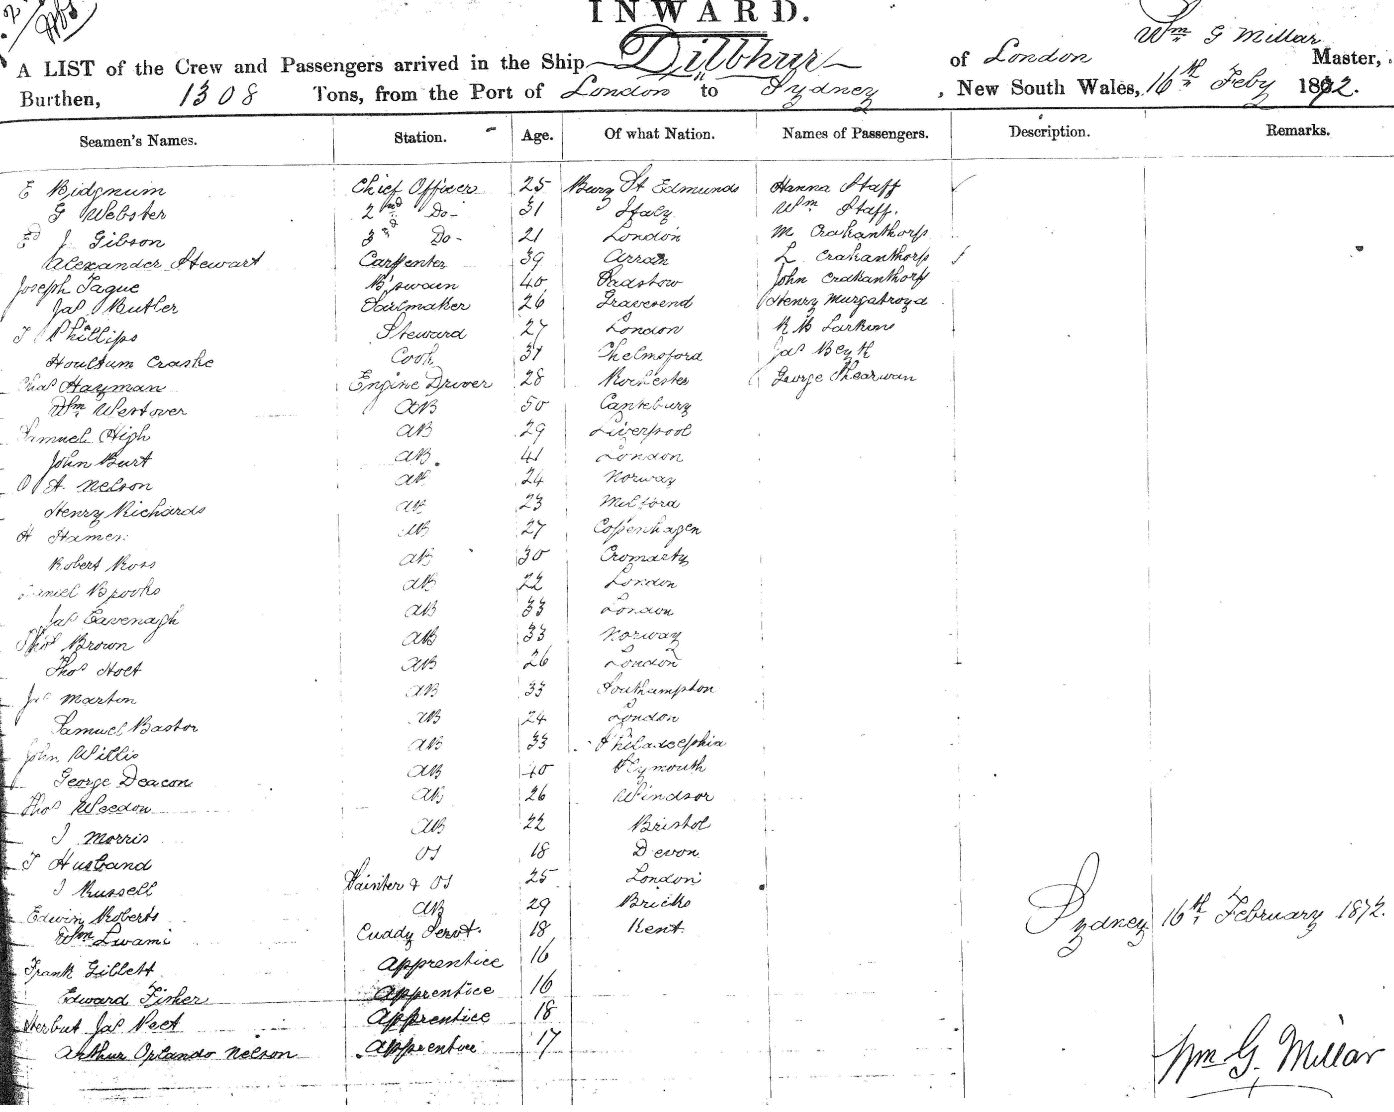 INWARD.
Wm G Millar
A LIST of the Crew and Passengers arrived in the Ship Dilbhur of London Master,
Burthen, 1308 Tons, from the Port of London to Sydney, New South Wales, 16th Feby 1872.
Seamen's Names. Station. Age. Of what Nation. Names of Passengers. Description. Remarks.
E Bidgnum Chief Officer 25 Bury St Edmunds Hanna Staff
G Webster 2nd Do- 31 Italy Wm Staff.
Ed J. Gibson 3rd Do- 21 London M Crakanthorp
Alexander Stewart Carpenter 39 Arran L Crakanthorp
Joseph Tague B'swain 40 Padstow John Crakanthorp
Jas Butler Sailmaker 26 Gravesend Henry Murgatroyd
T Phillips Steward 27 London R B Larkins
Houlsum Craske Cook 37 Chelmsford Jas Beyk
Chas Hayman Engine Driver 28 Rochester George Shearwan
Wm Westover AB 50 Cantebury
Samuel High AB 29 Liverpool
John Burt AB 41 London
O A. Nelson AB 24 Norway
Henry Richards AB 23 Milford
H Hamer AB 27 Coppenhagen
Robert Ross AB 30 Cromarty
Daniel Brooks AB 22 London
Jas Cavenagh AB 33 London
Thos Brown AB 33 Norway
Thos Holt AB 26 London
Jas Martin AB 33 Southampton
Samuel Bastor AB 24 London
John Willis AB 33 Philadelphia
George Deacon AB 40 Plymouth
Thos Weedon AB 26 Windsor
J Morris AB 22 Bristol
T Husband OS 18 Devon
J Russell Painter & OS 25 London
Edwin Roberts AB 29 Bricks
Wm Swami Cuddy Servt. 18 Kent
Sydney 16th February 1872.
Frank Gillett Apprentice 16
Edward Fisher Apprentice 16
Herbut Jas Peet Apprentice 18
Arthur Orlando Nelson Apprentice 17
Wm G. Millar